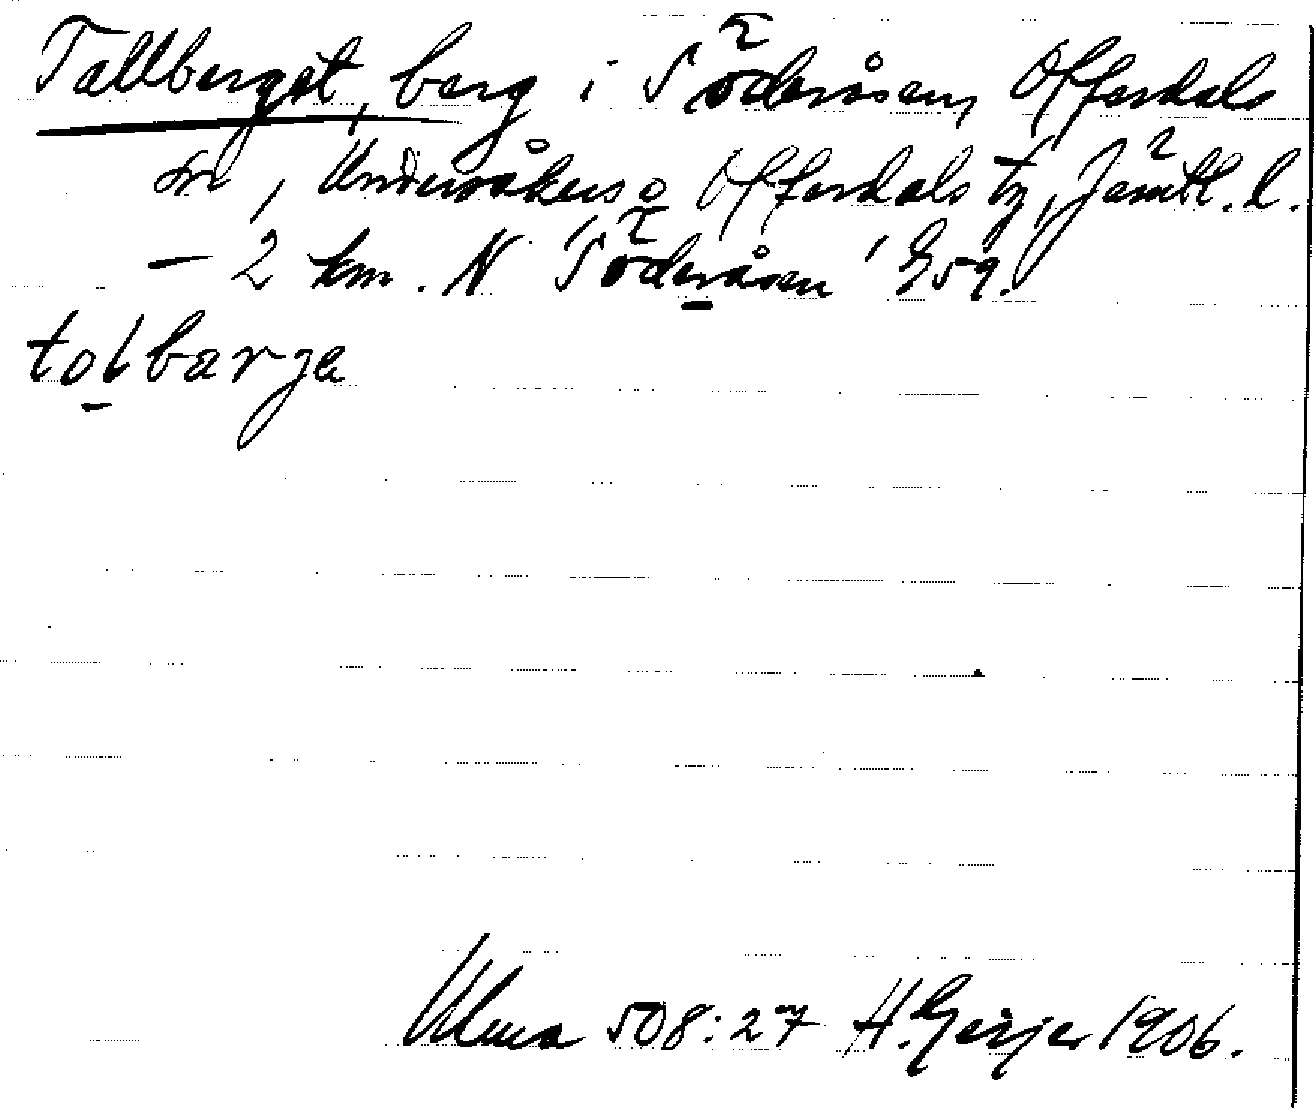 Tallberget, berg i Söderåsen, Offerdals
sn, Undersåkers o Offerdals tg, Jämtl. l.
— 2 km. N 'Söderåsen' G59.
tolbærja
Ulma 508:27 H. Geijer 1906.